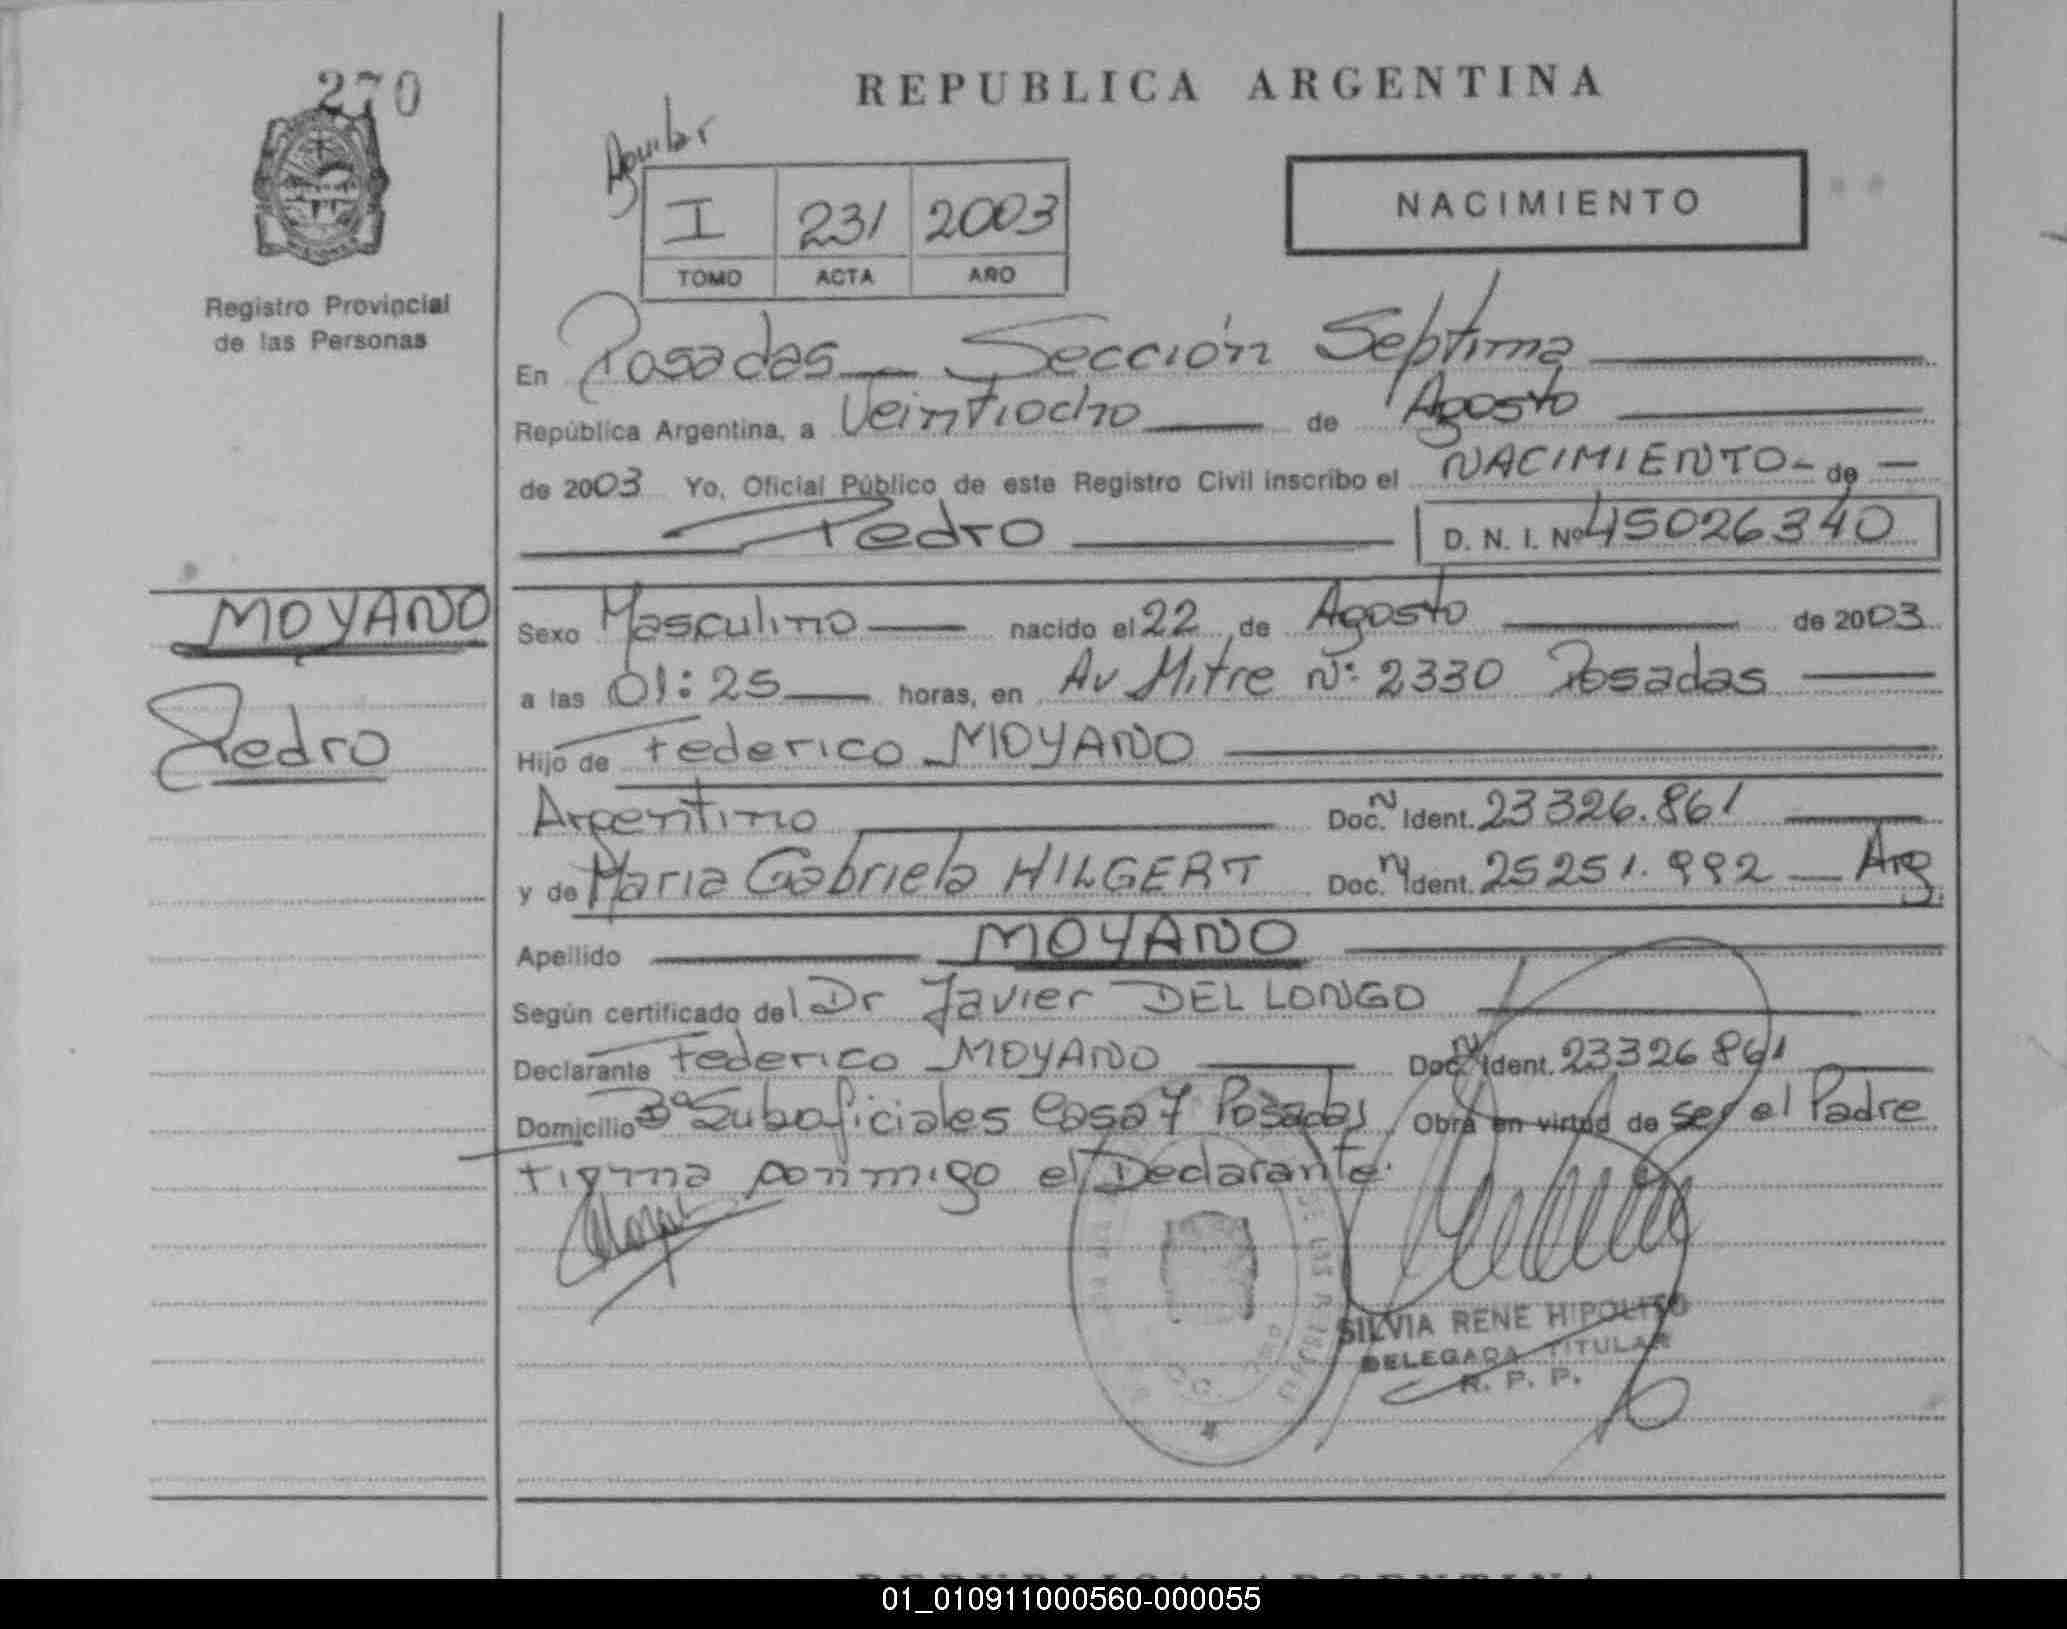 270
REPUBLICA ARGENTINA
Aguilar
I 231 2003
TOMO ACTA AÑO
NACIMIENTO
Registro Provincial
de las Personas
En Posadas — Sección Septima
República Argentina, a Veintiocho de Agosto
de 2003 Yo, Oficial Público de este Registro Civil inscribo el NACIMIENTO - de —
Pedro D. N. I. Nº 45026340
MOYANO
Pedro
Sexo Masculino nacido el 22 de Agosto de 2003
a las 01:25 horas, en Av Mitre Nº: 2330 Posadas
Hijo de Federico MOYANO
Argentino Doc. N Ident. 23326.861
y de Maria Gabriela HILGERT Doc. N Ident. 25251.992 — Arg.
Apellido MOYANO
Según certificado del Dr Javier DEL LONGO
Declarante Federico MOYANO Doc. N Ident. 23326861
Domicilio Bº Suboficiales Casa 7 Posadas Obra en virtud de ser el Padre
Firma conmigo el Declarante.
SILVIA RENE HIPOLITO
DELEGADA TITULAR
R. P. P.
REPUBLICA ARGENTINA
01_010911000560-000055